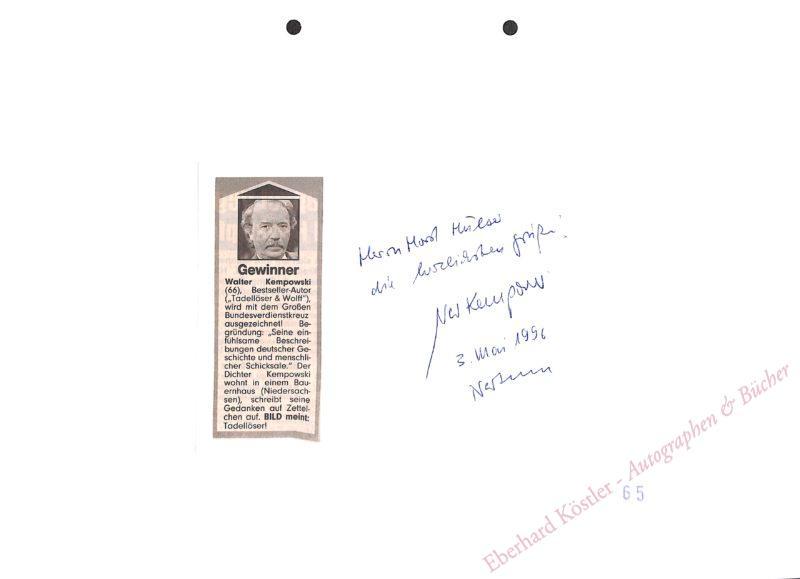 Gewinner
Walter Kempowski
(66), Bestseller-Autor
(„Tadellöser & Wolff"),
wird mit dem Großen
Bundesverdienstkreuz
ausgezeichnet! Be-
gründung: „Seine ein-
fühlsame Beschrei-
bungen deutscher Ge-
schichte und menschli-
cher Schicksale." Der
Dichter Kempowski
wohnt in einem Bau-
ernhaus (Niedersach-
sen), schreibt seine
Gedanken auf Zettel-
chen auf. BILD meint:
Tadellöser!
Herrn Horst
die herzlichsten Grüße!
Kempowski
3. Mai 1996
Nartum
65
Eberhard Köstler - Autographen & Bücher